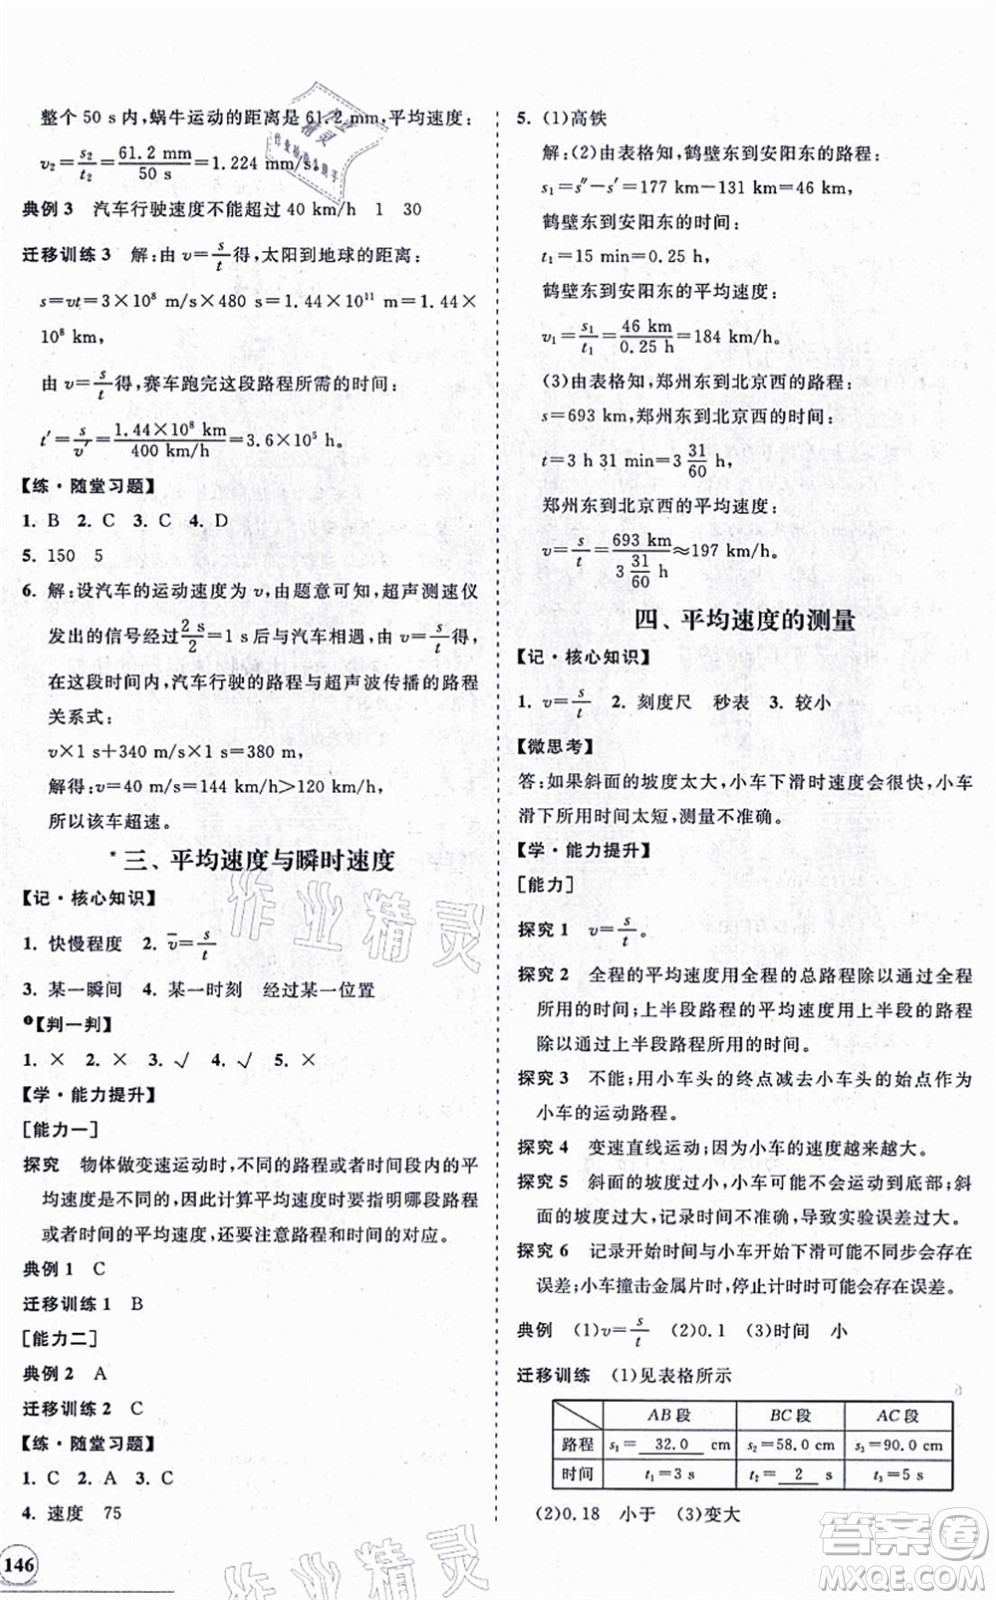 整个 50 s 内,蜗牛运动的距离是 61.2 mm,平均速度:
v₂=s₂/t₂=61.2 mm/50 s=1.224 mm/s。
典例 3 汽车行驶速度不能超过 40 km/h 1 30
迁移训练 3 解:由 v=s/t得,太阳到地球的距离:
s=vt=3×10⁸ m/s×480 s=1.44×10¹¹ m=1.44×
10⁸ km,
由 v=s/t得,赛车跑完这段路程所需的时间:
t′=s/v′=1.44×10⁸ km/400 km/h=3.6×10⁵ h。
【练·随堂习题】
1. B 2. C 3. C 4. D
5. 150 5
6. 解:设汽车的运动速度为 v,由题意可知,超声测速仪
发出的信号经过2 s/2=1 s后与汽车相遇,由 v=s/t得,
在这段时间内,汽车行驶的路程与超声波传播的路程
关系式:
v×1 s+340 m/s×1 s=380 m,
解得:v=40 m/s=144 km/h>120 km/h,
所以该车超速。
* 三、平均速度与瞬时速度
【记·核心知识】
1. 快慢程度 2. v̄=s/t
3. 某一瞬间 4. 某一时刻 经过某一位置
❶【判一判】
1. × 2. × 3. √ 4. √ 5. ×
【学·能力提升】
[能力一]
探究 物体做变速运动时,不同的路程或者时间段内的平
均速度是不同的,因此计算平均速度时要指明哪段路程
或者时间的平均速度,还要注意路程和时间的对应。
典例 1 C
迁移训练 1 B
[能力二]
典例 2 A
迁移训练 2 C
【练·随堂习题】
1. C 2. A 3. C
4. 速度 75
146
5. (1)高铁
解:(2)由表格知,鹤壁东到安阳东的路程:
s₁=s″−s′=177 km−131 km=46 km,
鹤壁东到安阳东的时间:
t₁=15 min=0.25 h,
鹤壁东到安阳东的平均速度:
v₁=s₁/t₁=46 km/0.25 h=184 km/h。
(3)由表格知,郑州东到北京西的路程:
s=693 km,郑州东到北京西的时间:
t=3 h 31 min=3 31/60 h,
郑州东到北京西的平均速度:
v=s/t=693 km/3 31/60 h≈197 km/h。
四、平均速度的测量
【记·核心知识】
1. v=s/t 2. 刻度尺 秒表 3. 较小
【微思考】
答:如果斜面的坡度太大,小车下滑时速度会很快,小车
滑下所用时间太短,测量不准确。
【学·能力提升】
[能力]
探究 1 v=s/t。
探究 2 全程的平均速度用全程的总路程除以通过全程
所用的时间;上半段路程的平均速度用上半段的路程
除以通过上半段路程所用的时间。
探究 3 不能;用小车头的终点减去小车头的始点作为
小车的运动路程。
探究 4 变速直线运动;因为小车的速度越来越大。
探究 5 斜面的坡度过小,小车可能无法运动到底部;斜
面的坡度过大,记录时间不准确,导致实验误差过大。
探究 6 记录开始时间与小车开始下滑可能不同步会存在
误差;小车撞击金属片时,停止计时时可能会存在误差。
典例 (1)v=s/t (2)0.1 (3)时间 小
迁移训练 (1)见表格所示
AB 段 BC 段 AC 段
路程 s₁= 32.0 cm s₂=58.0 cm s₃=90.0 cm
时间 t₁=3 s t₂= 2 s t₃=5 s
(2)0.18 小于 (3)变大
作业精灵
作业精灵
答案卷
MXQE.COM